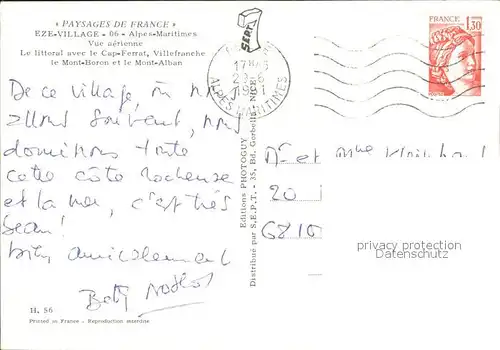 « PAYSAGES DE FRANCE »
EZE-VILLAGE - 06 - Alpes-Maritimes
Vue aérienne
Le littoral avec le Cap-Ferrat, Villefranche
le Mont-Boron et le Mont-Alban
De ce village, où nous
allons souvent, nous
dominons toute
cette côte rocheuse
et la mer, c'est très
beau!
bien amicalement
Betty
H. 56
Printed in France - Reproduction interdite
Editions PHOTOGUY
Distribué par S.E.P.T. - 35, Bd. Gorbella - NICE
SEPT
17H45
ALPES MARITIMES
FRANCE
1,30
Mr et Mme
20
6810
privacy protection
AnsichtskartenVersand.com